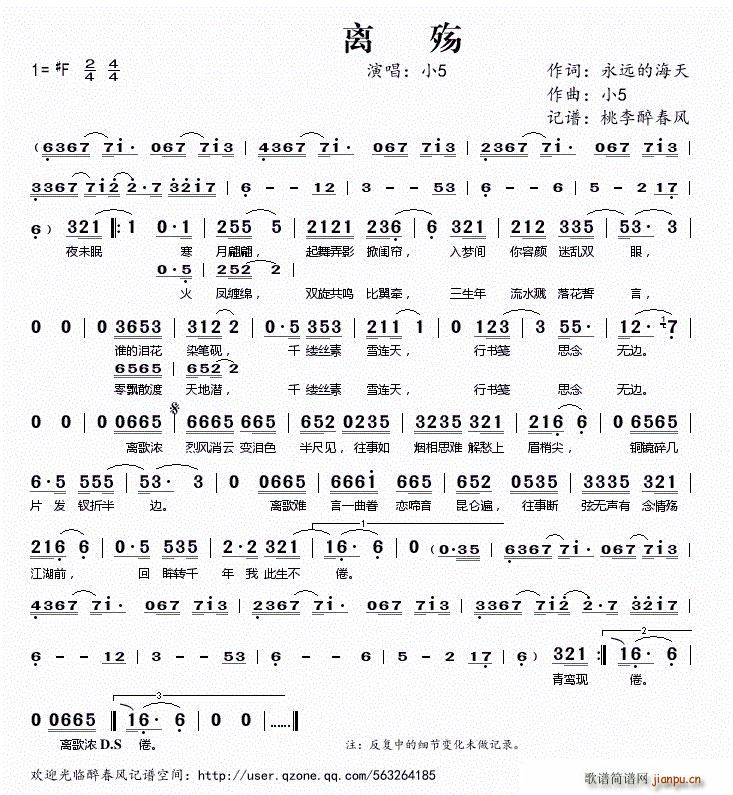 离 殇
1= ♯F 2/4 4/4 演唱: 小5 作词: 永远的海天
作曲: 小5
记谱: 桃李醉春风
(6367 71· 067 713 | 4367 71· 067 713 | 2367 71· 067 713 |
3367 712 2·7 3217 | 6 - - 12 | 3 - - 53 | 6 - - 6 | 5 - 2 17 |
6 ) 321 ‖: 1 0·1 | 255 5 | 2121 236 | 6 321 | 212 335 | 53· 3 |
夜未眠 寒 月翩翩, 起舞弄影 掀闺帘, 入梦间 你容颜 迷乱双 眼,
0·5 | 252 2 |
火 凤缠绵, 双旋共鸣 比翼牵, 三生年 流水溅 落花誓 言,
0 0 | 0 3653 | 312 2 | 0·5 353 | 211 1 | 0 123 | 3 55· | 12· 7 |
谁的泪花 染笔砚, 千 缕丝素 雪连天, 行书笺 思念 无边。
6565 | 652 2
零飘散渡 天地潜, 千 缕丝素 雪连天, 行书笺 思念 无边。
0 0 | 0 0665 | 6665 665 | 652 0235 | 3235 321 | 216 6 | 0 6565 |
离歌浓 烈风消云 变泪色 半尺见, 往事如 烟相思难 解愁上 眉梢尖, 铜镜碎几
6·5 555 | 53· 3 | 0 0665 | 6661 665 | 652 0535 | 3335 321 |
片 发 钗折半 边。 离歌难 言一曲眷 恋啼音 昆仑遍, 往事断 弦无声有 念情殇
1
216 6 | 0·5 535 | 2·2 321 | 16· 6 | 0 (0·35 | 6367 71· 067 713 |
江湖前, 回 眸转千 年 我 此生不 倦。
4367 71· 067 713 | 2367 71· 067 713 | 3367 712 2·7 3217 |
2
6 - - 12 | 3 - - 53 | 6 - - 6 | 5 - 2 17 | 6 ) 321 :‖ 16· 6 |
青鸾现 倦。
3
0 0665 ‖ 16· 6 | 0 0 |……‖
离歌浓 D.S 倦。 注: 反复中的细节变化未做记录。
欢迎光临醉春风记谱空间: http://user.qzone.qq.com/563264185
歌谱简谱网 jianpu.cn